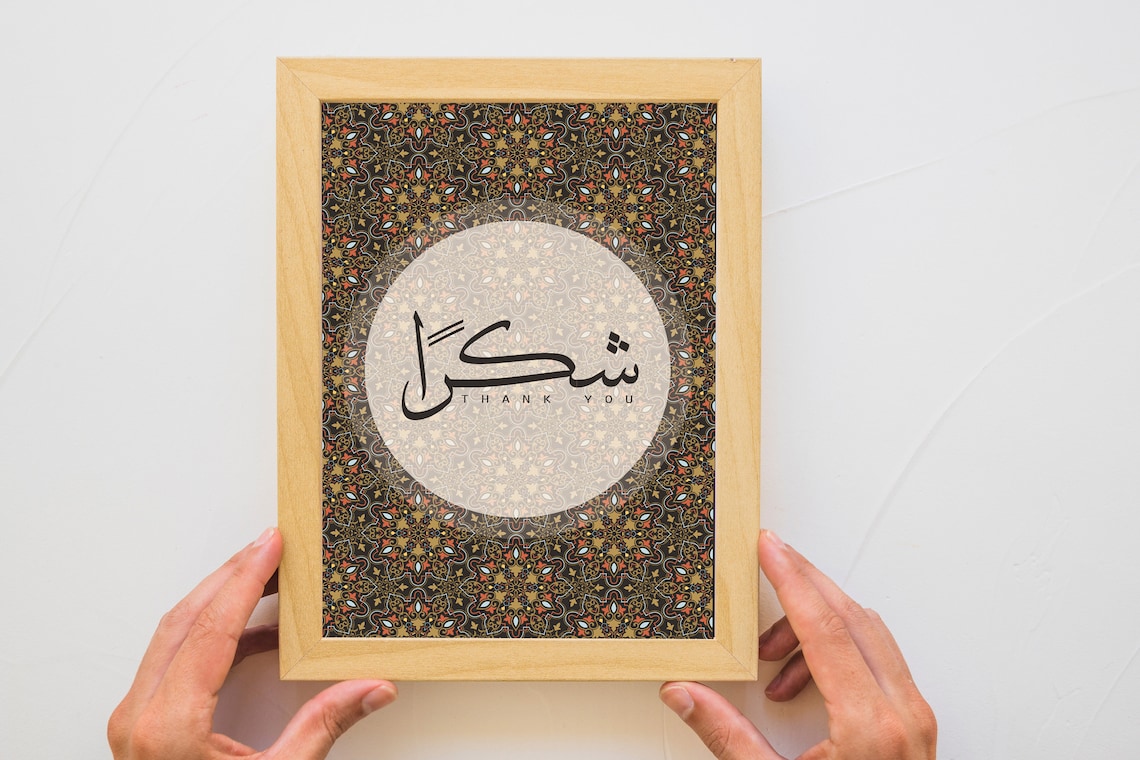 شكرًا
THANK YOU